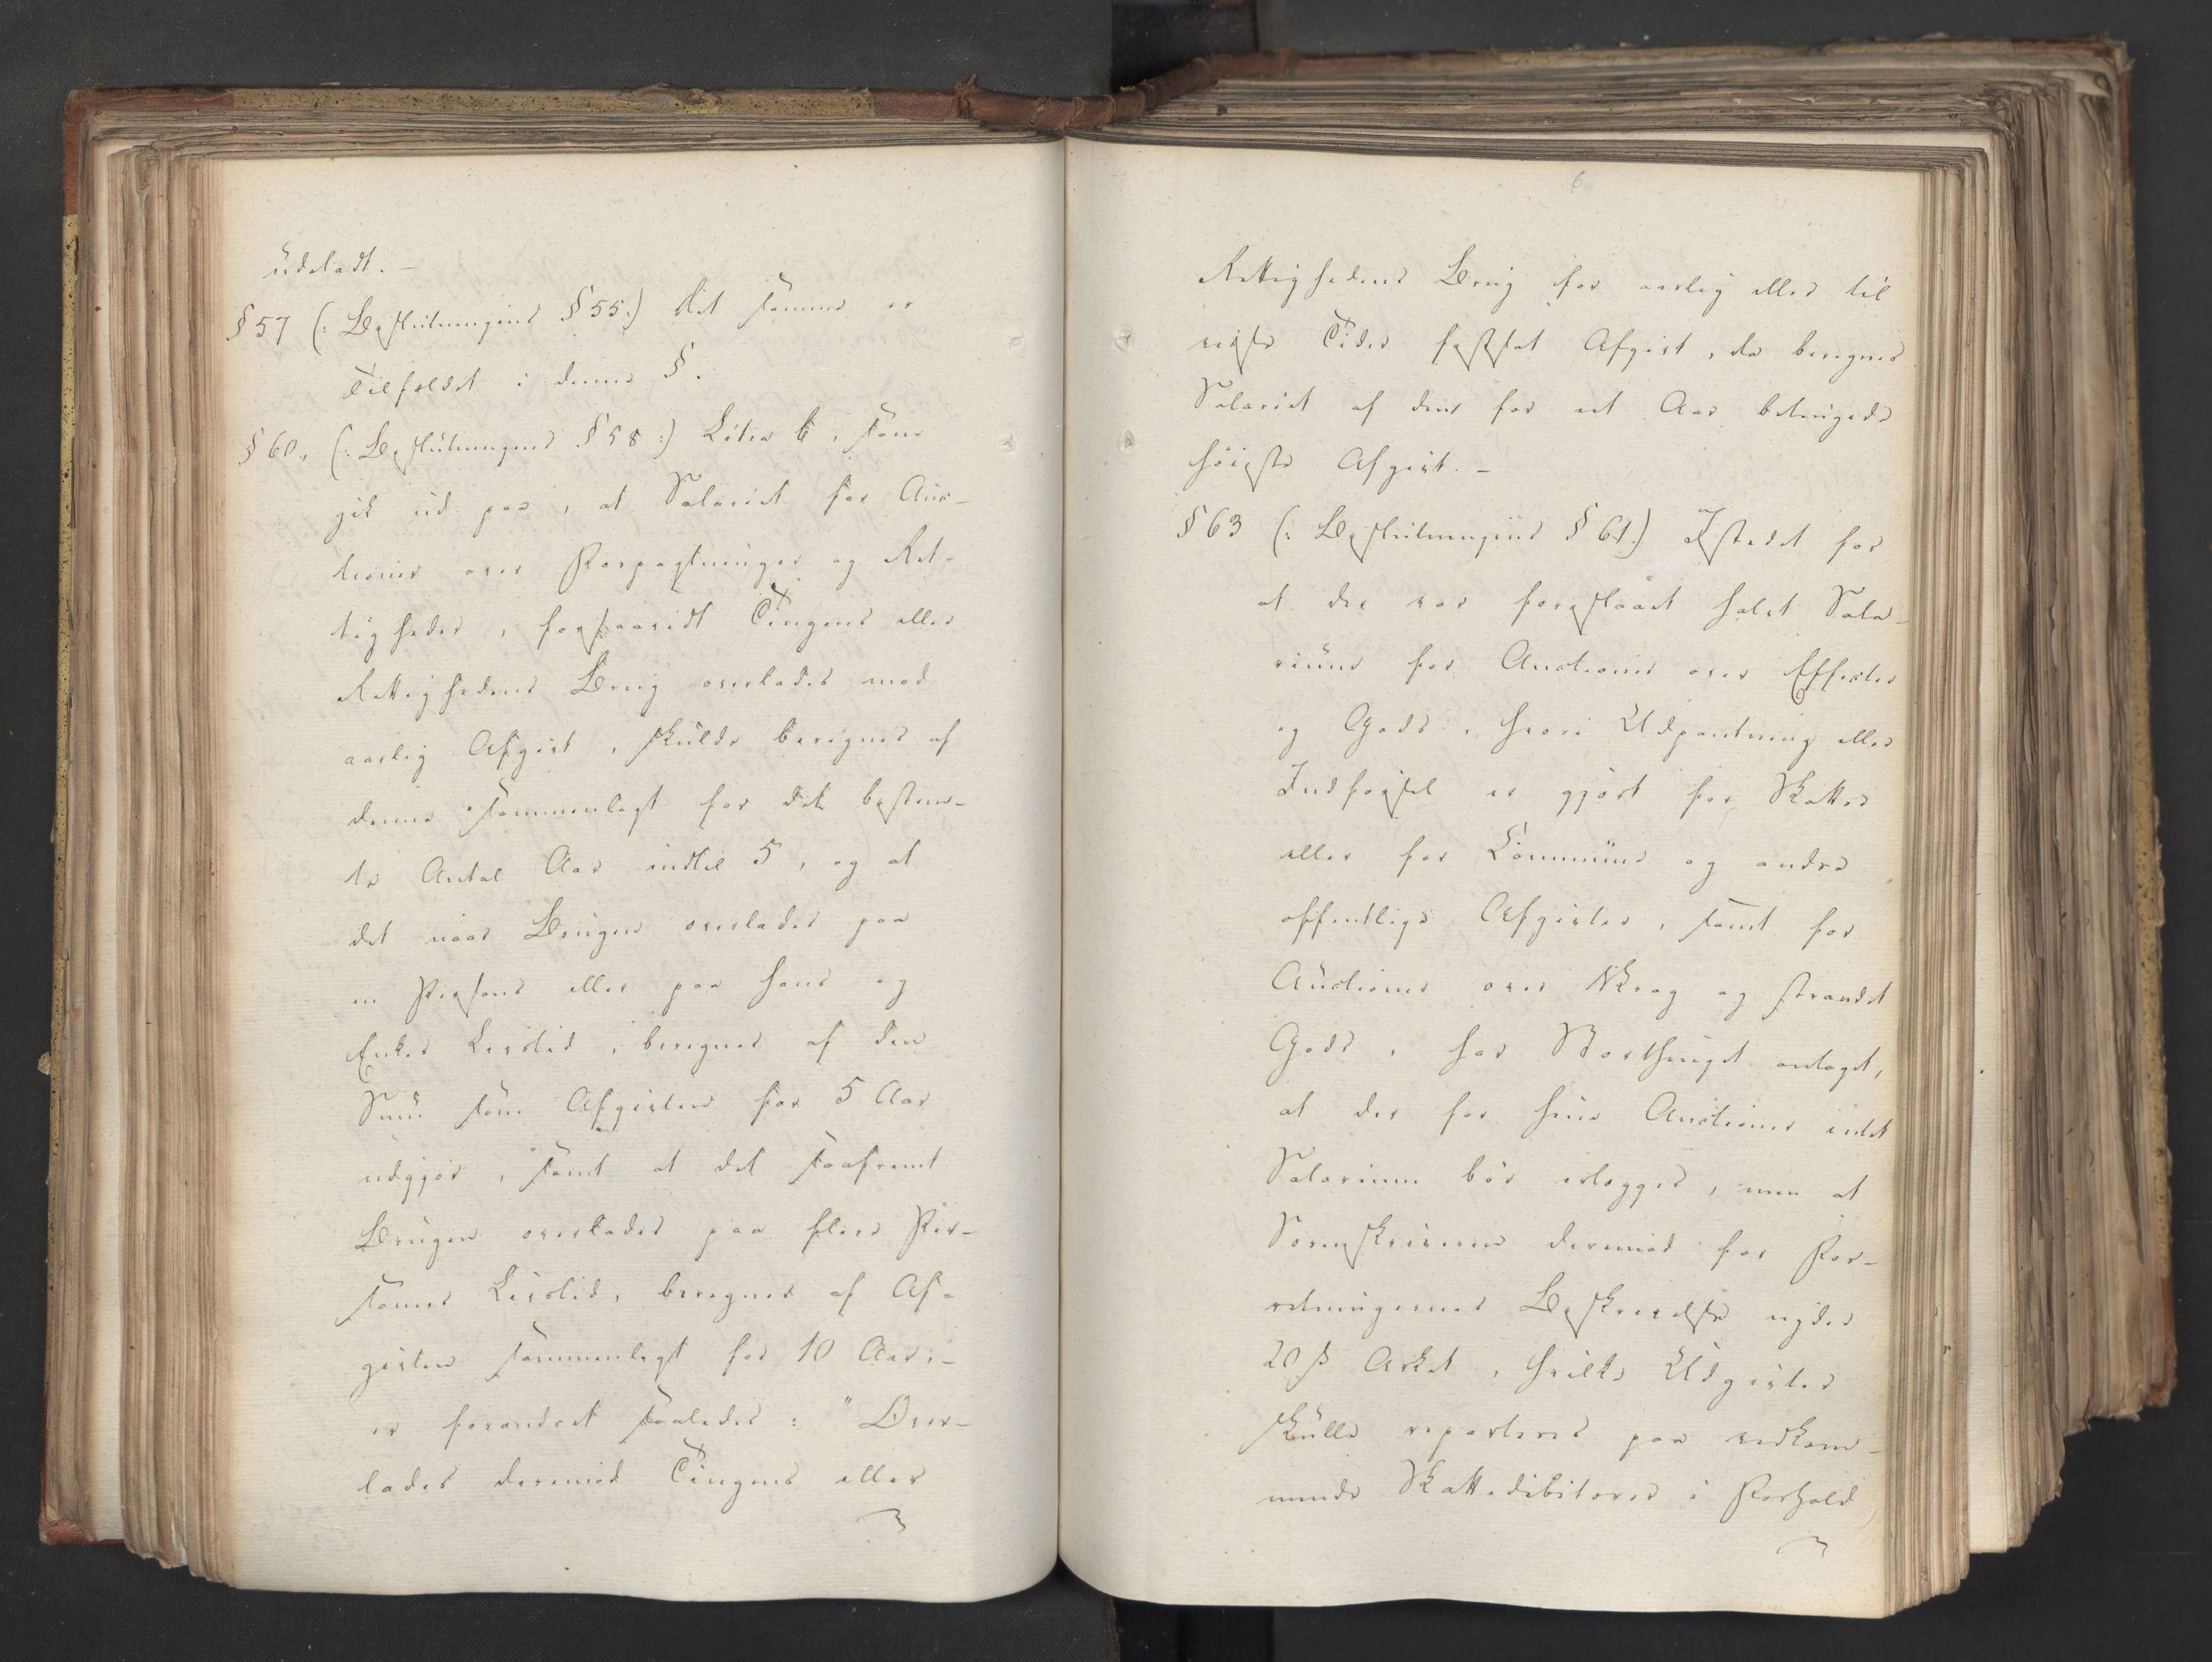 udeladt. –
§ 57 (: Beslutningens § 55:) det samme er
Tilfældet i denne §.
§ 60., (: Beslutningens § 58 :) Litra b, som
gik ud paa, at Salariet for Auc-
tioner over Forpagtninger og Ret-
tigheder, forsaavidt Tingens eller
Rettighedens Brug overlades mod
aarlig Afgivt, skulde beregnes af
denne sammenlagt for det bestem-
te Antal Aar indtil 5, og at
det naar Brugen overlades paa
en Persons eller paa hans og
Enkes Levetid, beregnes af den
Sum som Afgivten for 5 Aar
udgjør, samt at det saafremt
Brugen overlades paa flere Per-
soners Levetid, beregnes af Af-
givten sammenlagt for 10 Aar, –
er forandret saaledes: "Over-
lades derimod Tingens eller
6
Rettighedens Brug for aarlig eller til
visse Tider fastsat Afgivt, da beregnes
Salariet af den for eet Aar betingede
høieste Afgivt. –
§ 63 (: Beslutningens § 61:) Istedet for
at der var foreslaaet halvt Sala-
rium for Auctioner over Effecter
og Gods, hvori Udpantning eller
Indførsel er gjort for Skatter
eller for Commune og andre
offentlige Afgivter, samt for
Auctioner over Vrag og strandet
Gods, har Storthinget antaget,
at der for hine Auctioner intet
Salarium bør erlægges, men at
Sorenskriveren derimod for For-
retningernes Beskrivelse nyder
20 ß Arket, hvilke Udgivter
skulle reparteres paa vedkom-
mende Skattedebitorer i Forhold